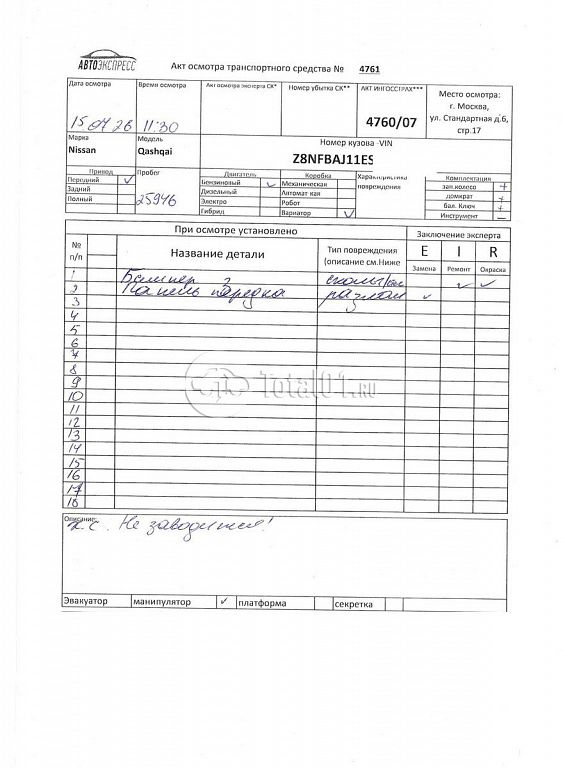 АВТОЭКСПРЕСС
Акт осмотра транспортного средства № 4761
Дата осмотра Время осмотра Акт осмотра эксперта СК* Номер убытка СК** АКТ ИНГОССТРАХ*** Место осмотра:
г. Москва,
15 11:30 4760/07 ул. Стандартная д.6,
стр.17
Марка Модель Номер кузова -VIN
Nissan Qashqai Z8NFBAJ11ES
Привод Пробег Двигатель Коробка Характеристика повреждения Комплектация
Передний ✓ Бензиновый ✓ Механическая зап.колесо +
Задний 25946 Дизельный Автомат кая домкрат +
Полный Электро Робот бал. Ключ +
Гибрид Вариатор ✓ Инструмент –
При осмотре установлено Заключение эксперта
№ п/п Название детали Тип повреждения (описание см.Ниже E I R
Замена Ремонт Окраска
1 Бампер п сколы ✓ ✓
2 Панель передка разлом ✓
3
4
5
6
7
8
9
10
11
12
13
14
15
16
17
18
Total01.RU
Описание: Не заводится!
Эвакуатор манипулятор ✓ платформа секретка